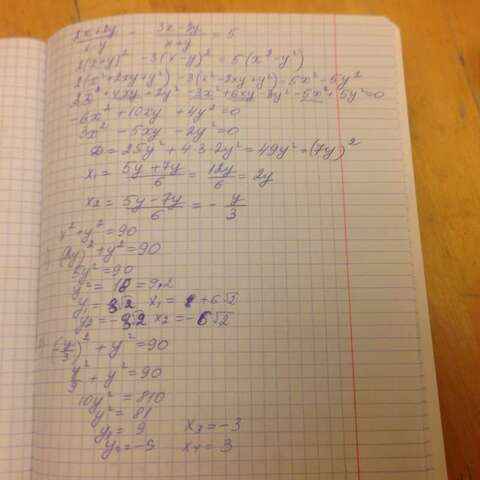 (2x+2y)/(x-y) - (3x-3y)/(x+y) = 5
2(x+y)² - 3(x-y)² = 5(x²-y²)
2(x²+2xy+y²) - 3(x²-2xy+y²) = 5x²-5y²
2x²+4xy+2y²-3x²+6xy-3y²-5x²+5y²=0
-6x²+10xy+4y²=0
3x²-5xy-2y²=0
D=25y²+4·3·2y²=49y²=(7y)²
x₁=(5y+7y)/6=12y/6=2y
x₂=(5y-7y)/6=-y/3
x²+y²=90
(2y)²+y²=90
5y²=90
y²=18=9·2
y₁=3√2 x₁=+6√2
y₂=-3√2 x₂=-6√2
(-y/3)²+y²=90
y²/9+y²=90
10y²=810
y²=81
y₃=9 x₃=-3
y₄=-9 x₄=3